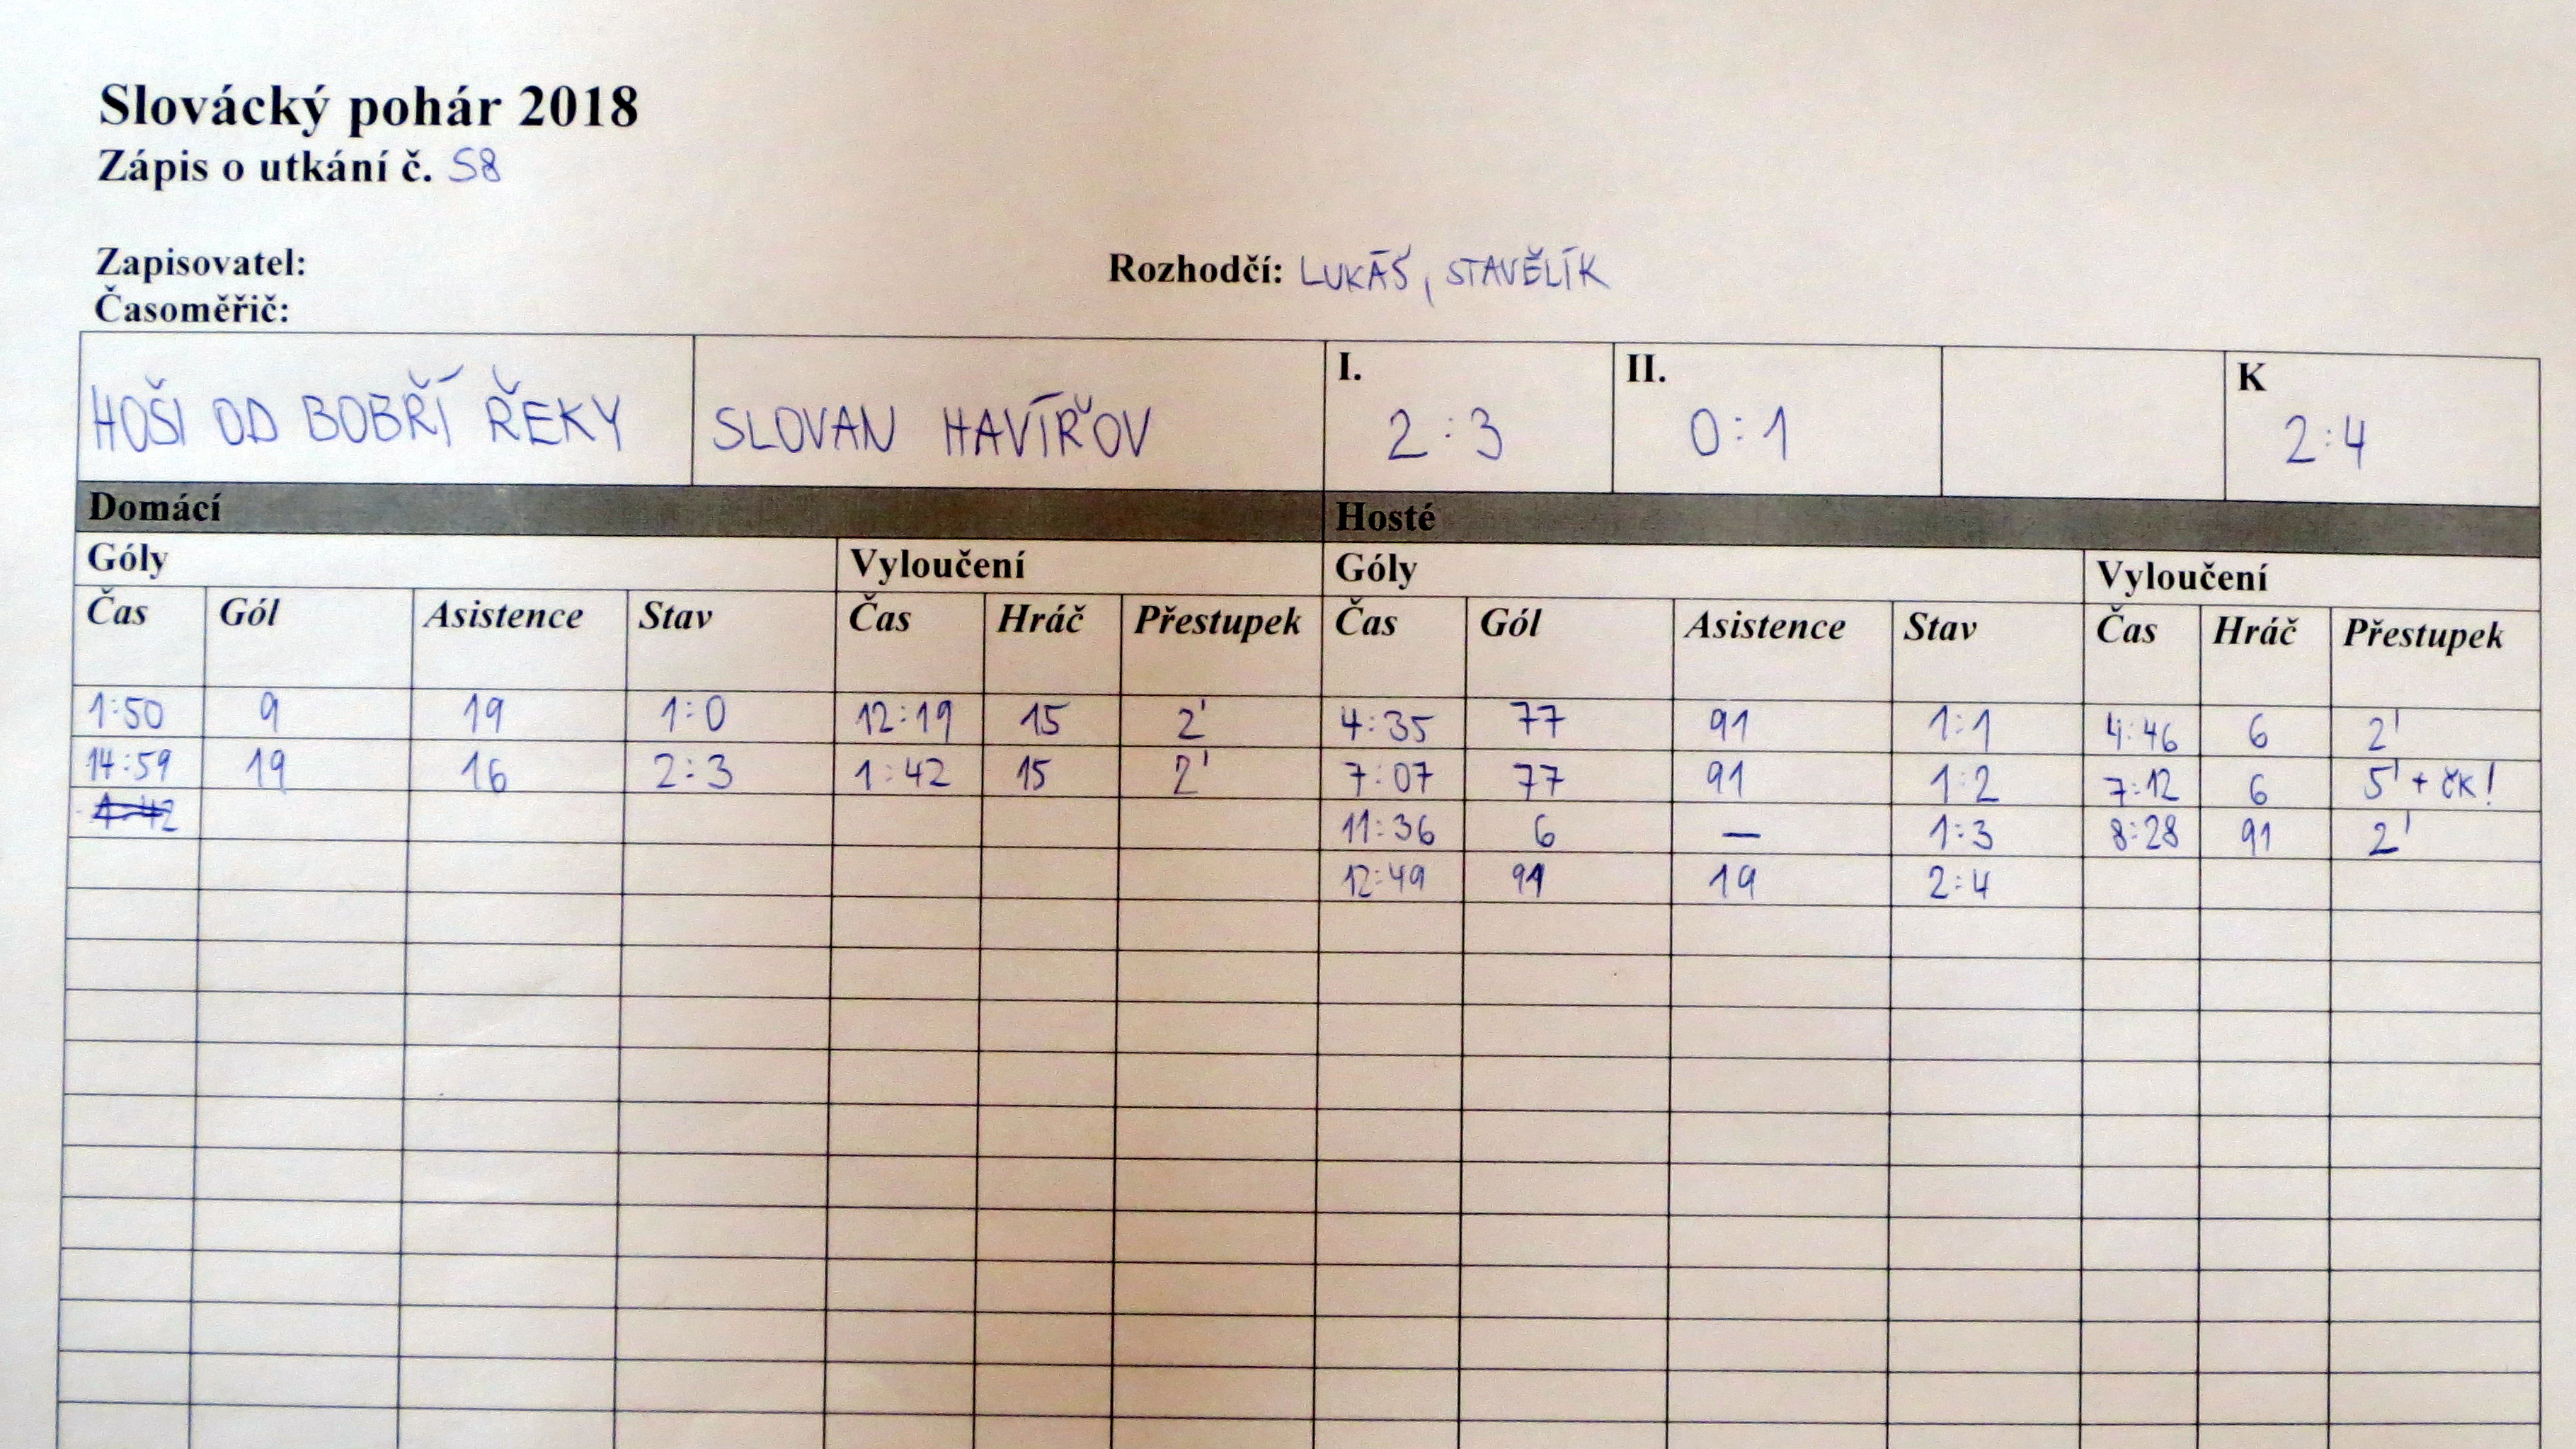 Slovácký pohár 2018
Zápis o utkání č. 58
Zapisovatel:
Rozhodčí: LUKÁŠ, STAVĚLÍK
Časoměřič:
HOŠI OD BOBŘÍ ŘEKY SLOVAN HAVÍŘOV I. 2:3 II. 0:1 K 2:4
Domácí Hosté
Góly Vyloučení Góly Vyloučení
Čas Gól Asistence Stav Čas Hráč Přestupek Čas Gól Asistence Stav Čas Hráč Přestupek
1:50 9 19 1:0 12:19 15 2' 4:35 77 91 1:1 4:46 6 2'
14:59 19 16 2:3 1:42 15 2' 7:07 77 91 1:2 7:12 6 5' + ČK!
11:36 6 — 1:3 8:28 91 2'
12:49 91 19 2:4